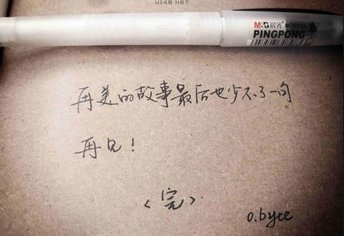 U148.NET
M&G 晨光
PINGPONG
再美的故事最后也少不了一句
再见！
<完>
o.byee